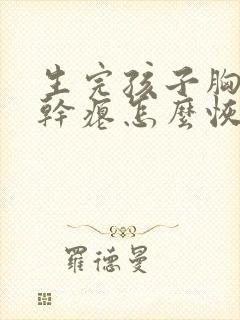 生完孩子胸
幹瘪怎麼恢
羅德曼